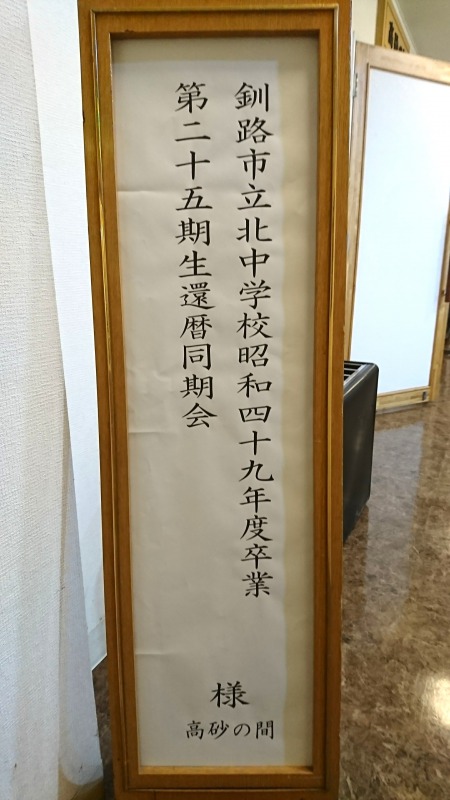 釧路市立北中学校昭和四十九年度卒業
第二十五期生還暦同期会
様
高砂の間